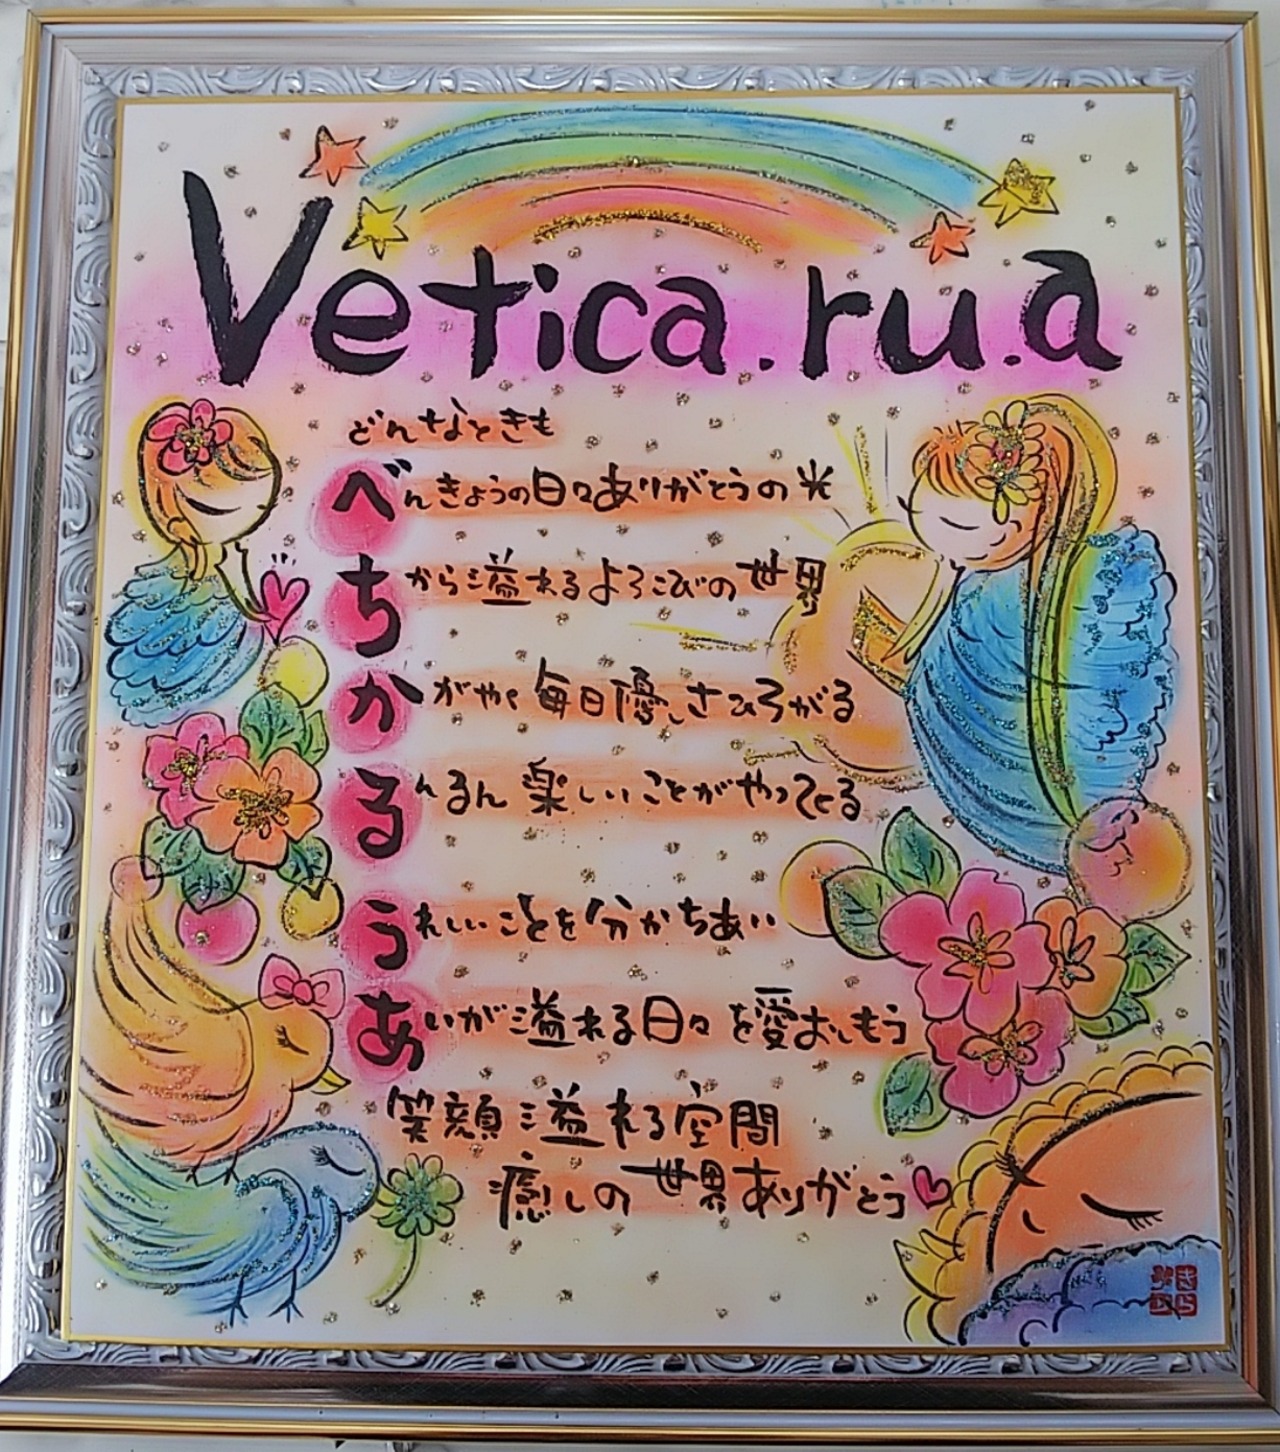 Vetica.ru.a
どんなときも
べんきょうの日々ありがとうの光
ちから溢れるよろこびの世界
かがやく毎日優しさひろがる
るんるん楽しいことがやってくる
うれしいことを分かちあい
あいが溢れる日々を愛おしもう
笑顔溢れる空間
癒しの世界ありがとう